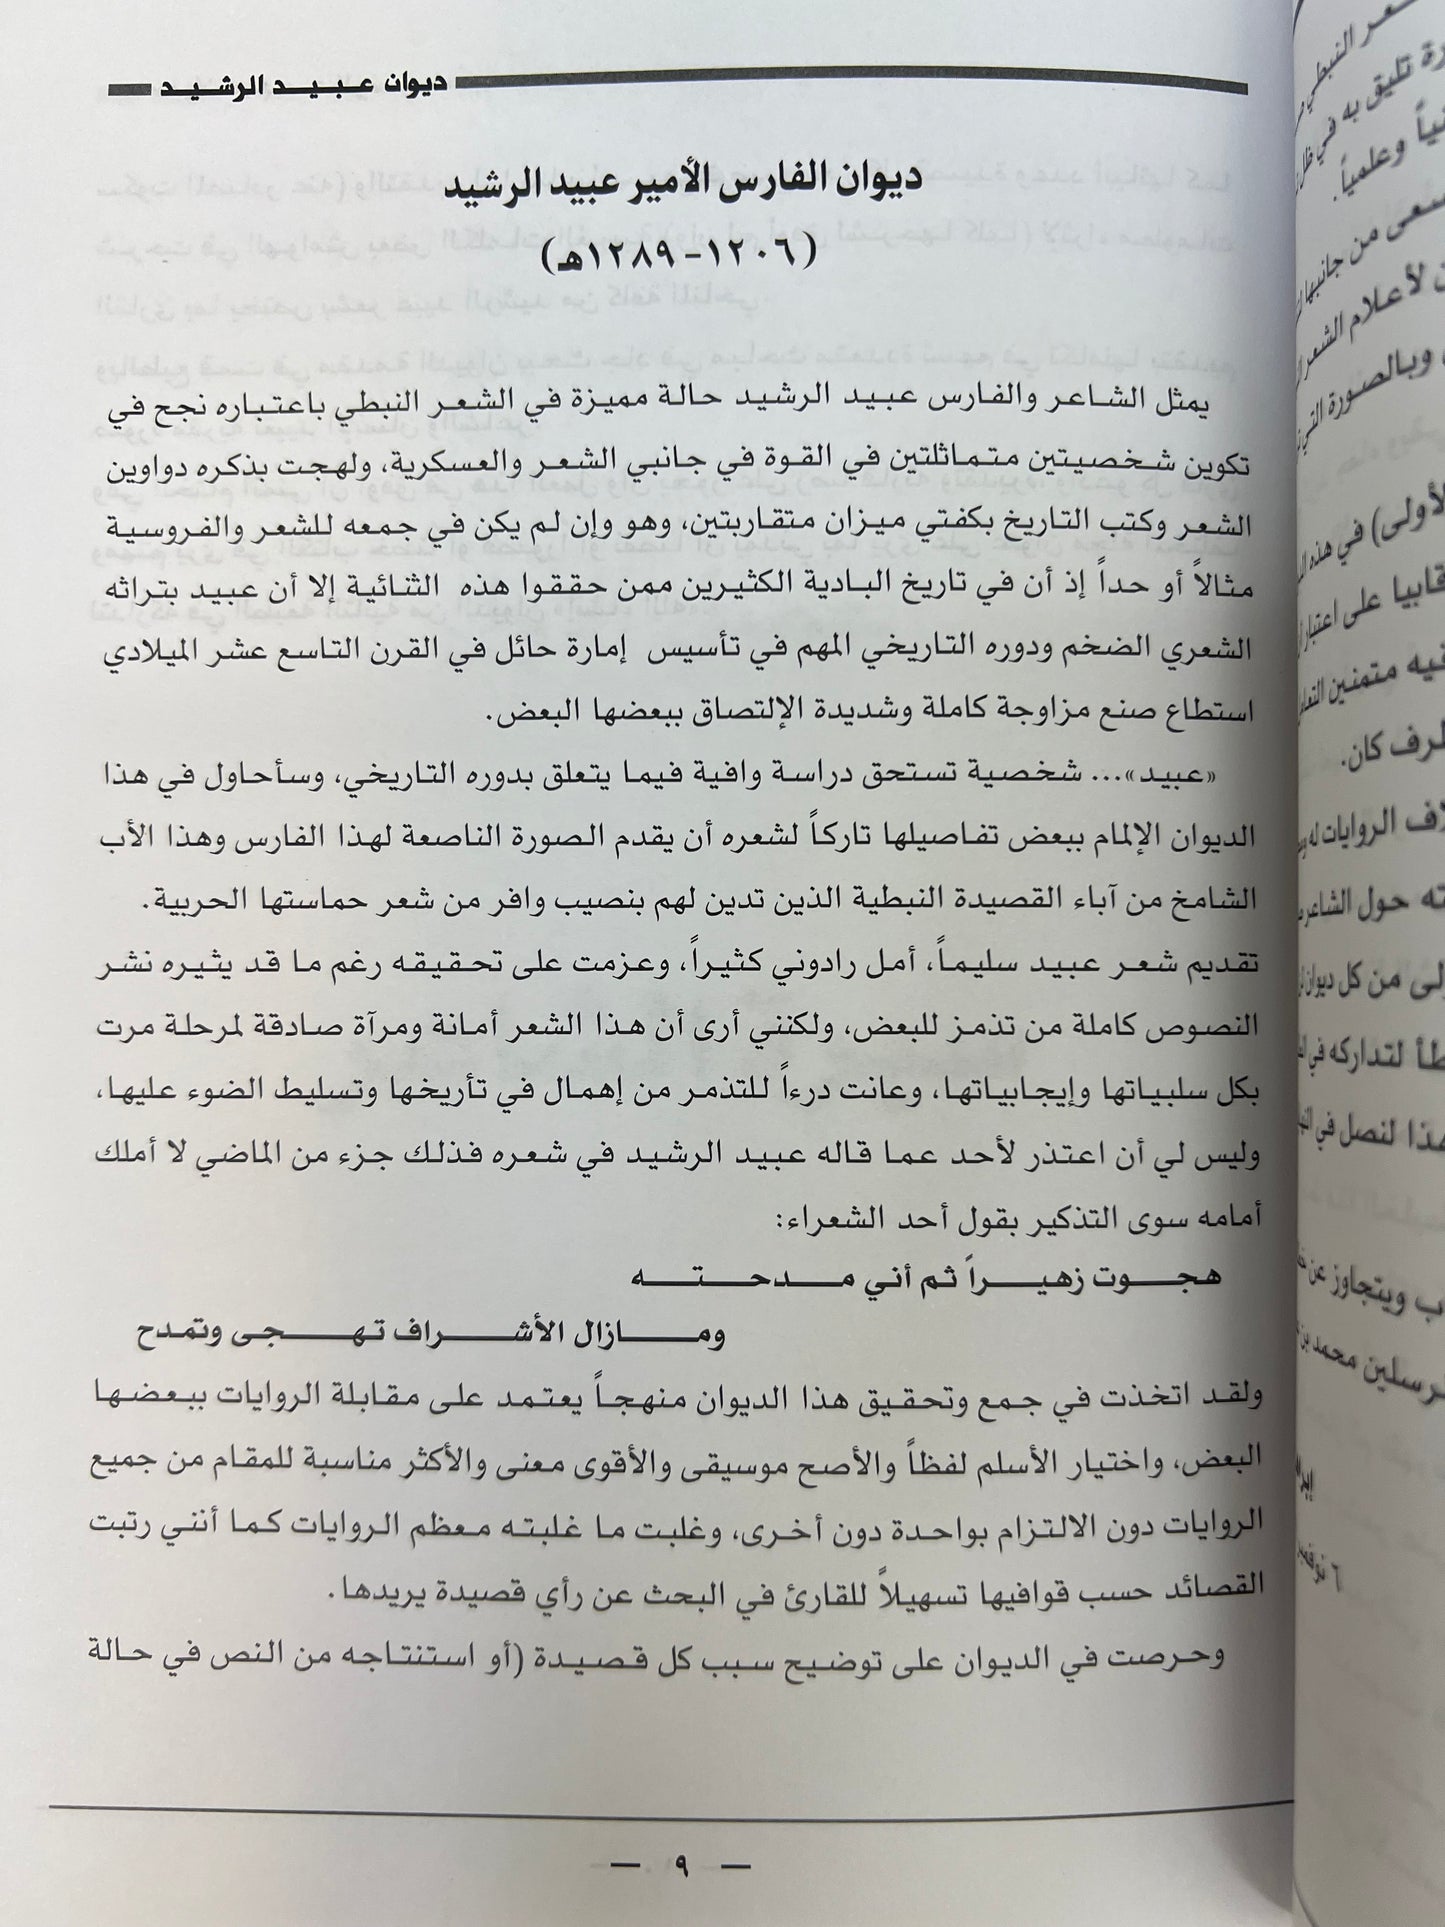 ديوان عبيد الرشيد
ديوان الفارس الأمير عبيد الرشيد
(١٢٠٦-١٢٨٩هـ)
يمثل الشاعر والفارس عبيد الرشيد حالة مميزة في الشعر النبطي باعتباره نجح في
تكوين شخصيتين متماثلتين في القوة في جانبي الشعر والعسكرية، ولهجت بذكره دواوين
الشعر وكتب التاريخ بكفتي ميزان متقاربتين، وهو وإن لم يكن في جمعه للشعر والفروسية
مثالاً أو حداً إذ أن في تاريخ البادية الكثيرين ممن حققوا هذه الثنائية إلا أن عبيد بتراثه
الشعري الضخم ودوره التاريخي المهم في تأسيس إمارة حائل في القرن التاسع عشر الميلادي
استطاع صنع مزاوجة كاملة وشديدة الإلتصاق ببعضها البعض.
«عبيد»... شخصية تستحق دراسة وافية فيما يتعلق بدوره التاريخي، وسأحاول في هذا
الديوان الإلمام ببعض تفاصيلها تاركاً لشعره أن يقدم الصورة الناصعة لهذا الفارس وهذا الأب
الشامخ من آباء القصيدة النبطية الذين تدين لهم بنصيب وافر من شعر حماستها الحربية.
تقديم شعر عبيد سليماً، أمل رادوني كثيراً، وعزمت على تحقيقه رغم ما قد يثيره نشر
النصوص كاملة من تذمز للبعض، ولكنني أرى أن هذا الشعر أمانة ومرآة صادقة لمرحلة مرت
بكل سلبياتها وإيجابياتها، وعانت درءاً للتذمر من إهمال في تأريخها وتسليط الضوء عليها،
وليس لي أن اعتذر لأحد عما قاله عبيد الرشيد في شعره فذلك جزء من الماضي لا أملك
أمامه سوى التذكير بقول أحد الشعراء:
هجوت زهيراً ثم أني مدحته
ومازال الأشراف تهجى وتمدح
ولقد اتخذت في جمع وتحقيق هذا الديوان منهجاً يعتمد على مقابلة الروايات ببعضها
البعض، واختيار الأسلم لفظاً والأصح موسيقى والأقوى معنى والأكثر مناسبة للمقام من جميع
الروايات دون الالتزام بواحدة دون أخرى، وغلبت ما غلبته معظم الروايات كما أنني رتبت
القصائد حسب قوافيها تسهيلاً للقارئ في البحث عن رأي قصيدة يريدها.
وحرصت في الديوان على توضيح سبب كل قصيدة (أو استنتاجه من النص في حالة
— ٩ —
عر النبطي
تليق به في ظل
وعلمياً.
سعى من جانبها
لأعلام الشعر
وبالصورة التي
الأولى) في هذه
على اعتبار
فيه متمنين
طرف كان.
الروايات له
حول الشاعر
من كل ديوان
لتداركه في
هذا لنصل في
ويتجاوز عن
محمد بن